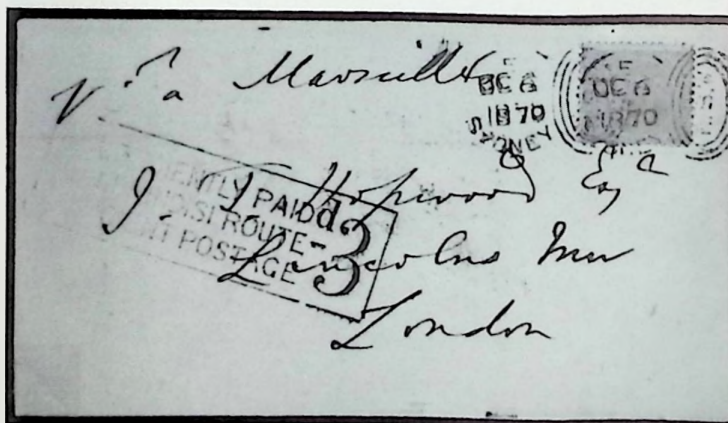 Via Marseilles
DE 6
1870
SYDNEY
DE 6
1870
J. T. Hopwood Esq
ENTLY PAID
ISI ROUTE-
T POSTAGE
d.
3
Lincolns Inn
London